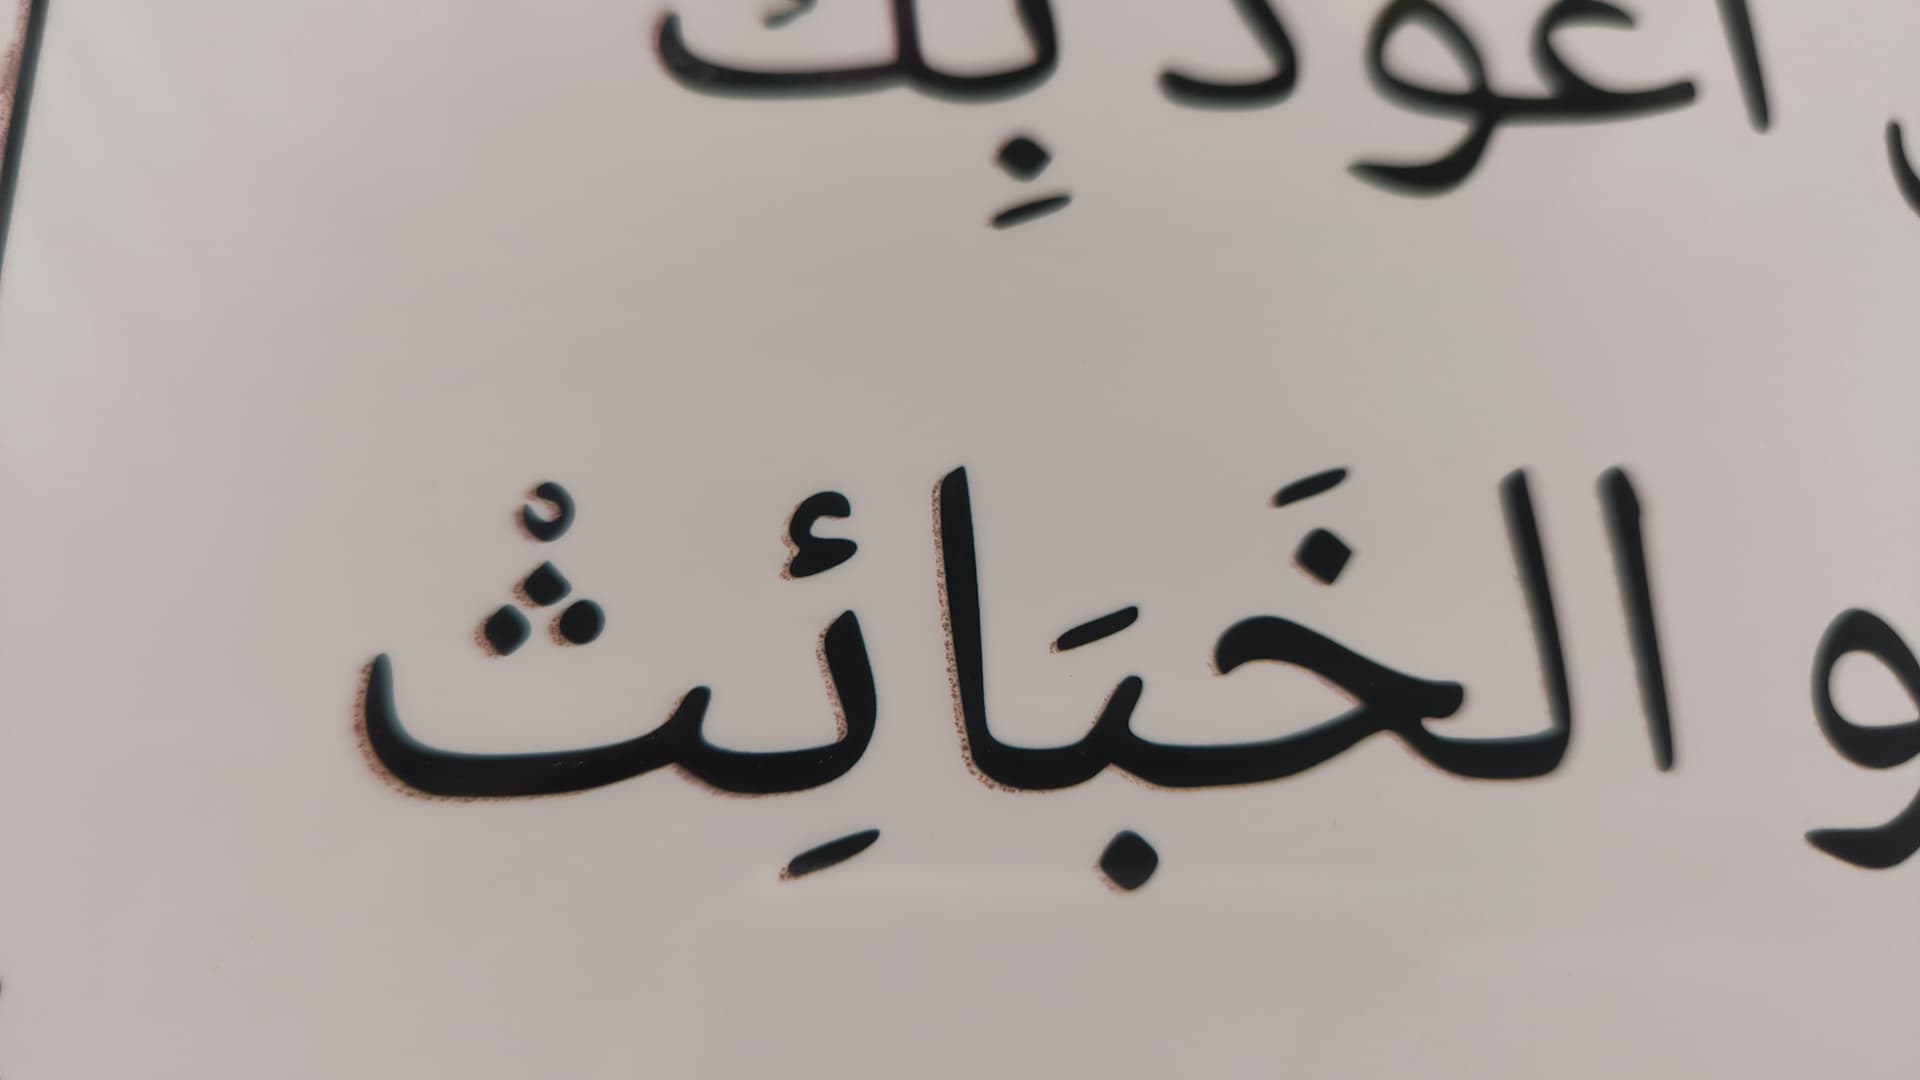 أعوذ بِكَ
و الخَبَائِثْ